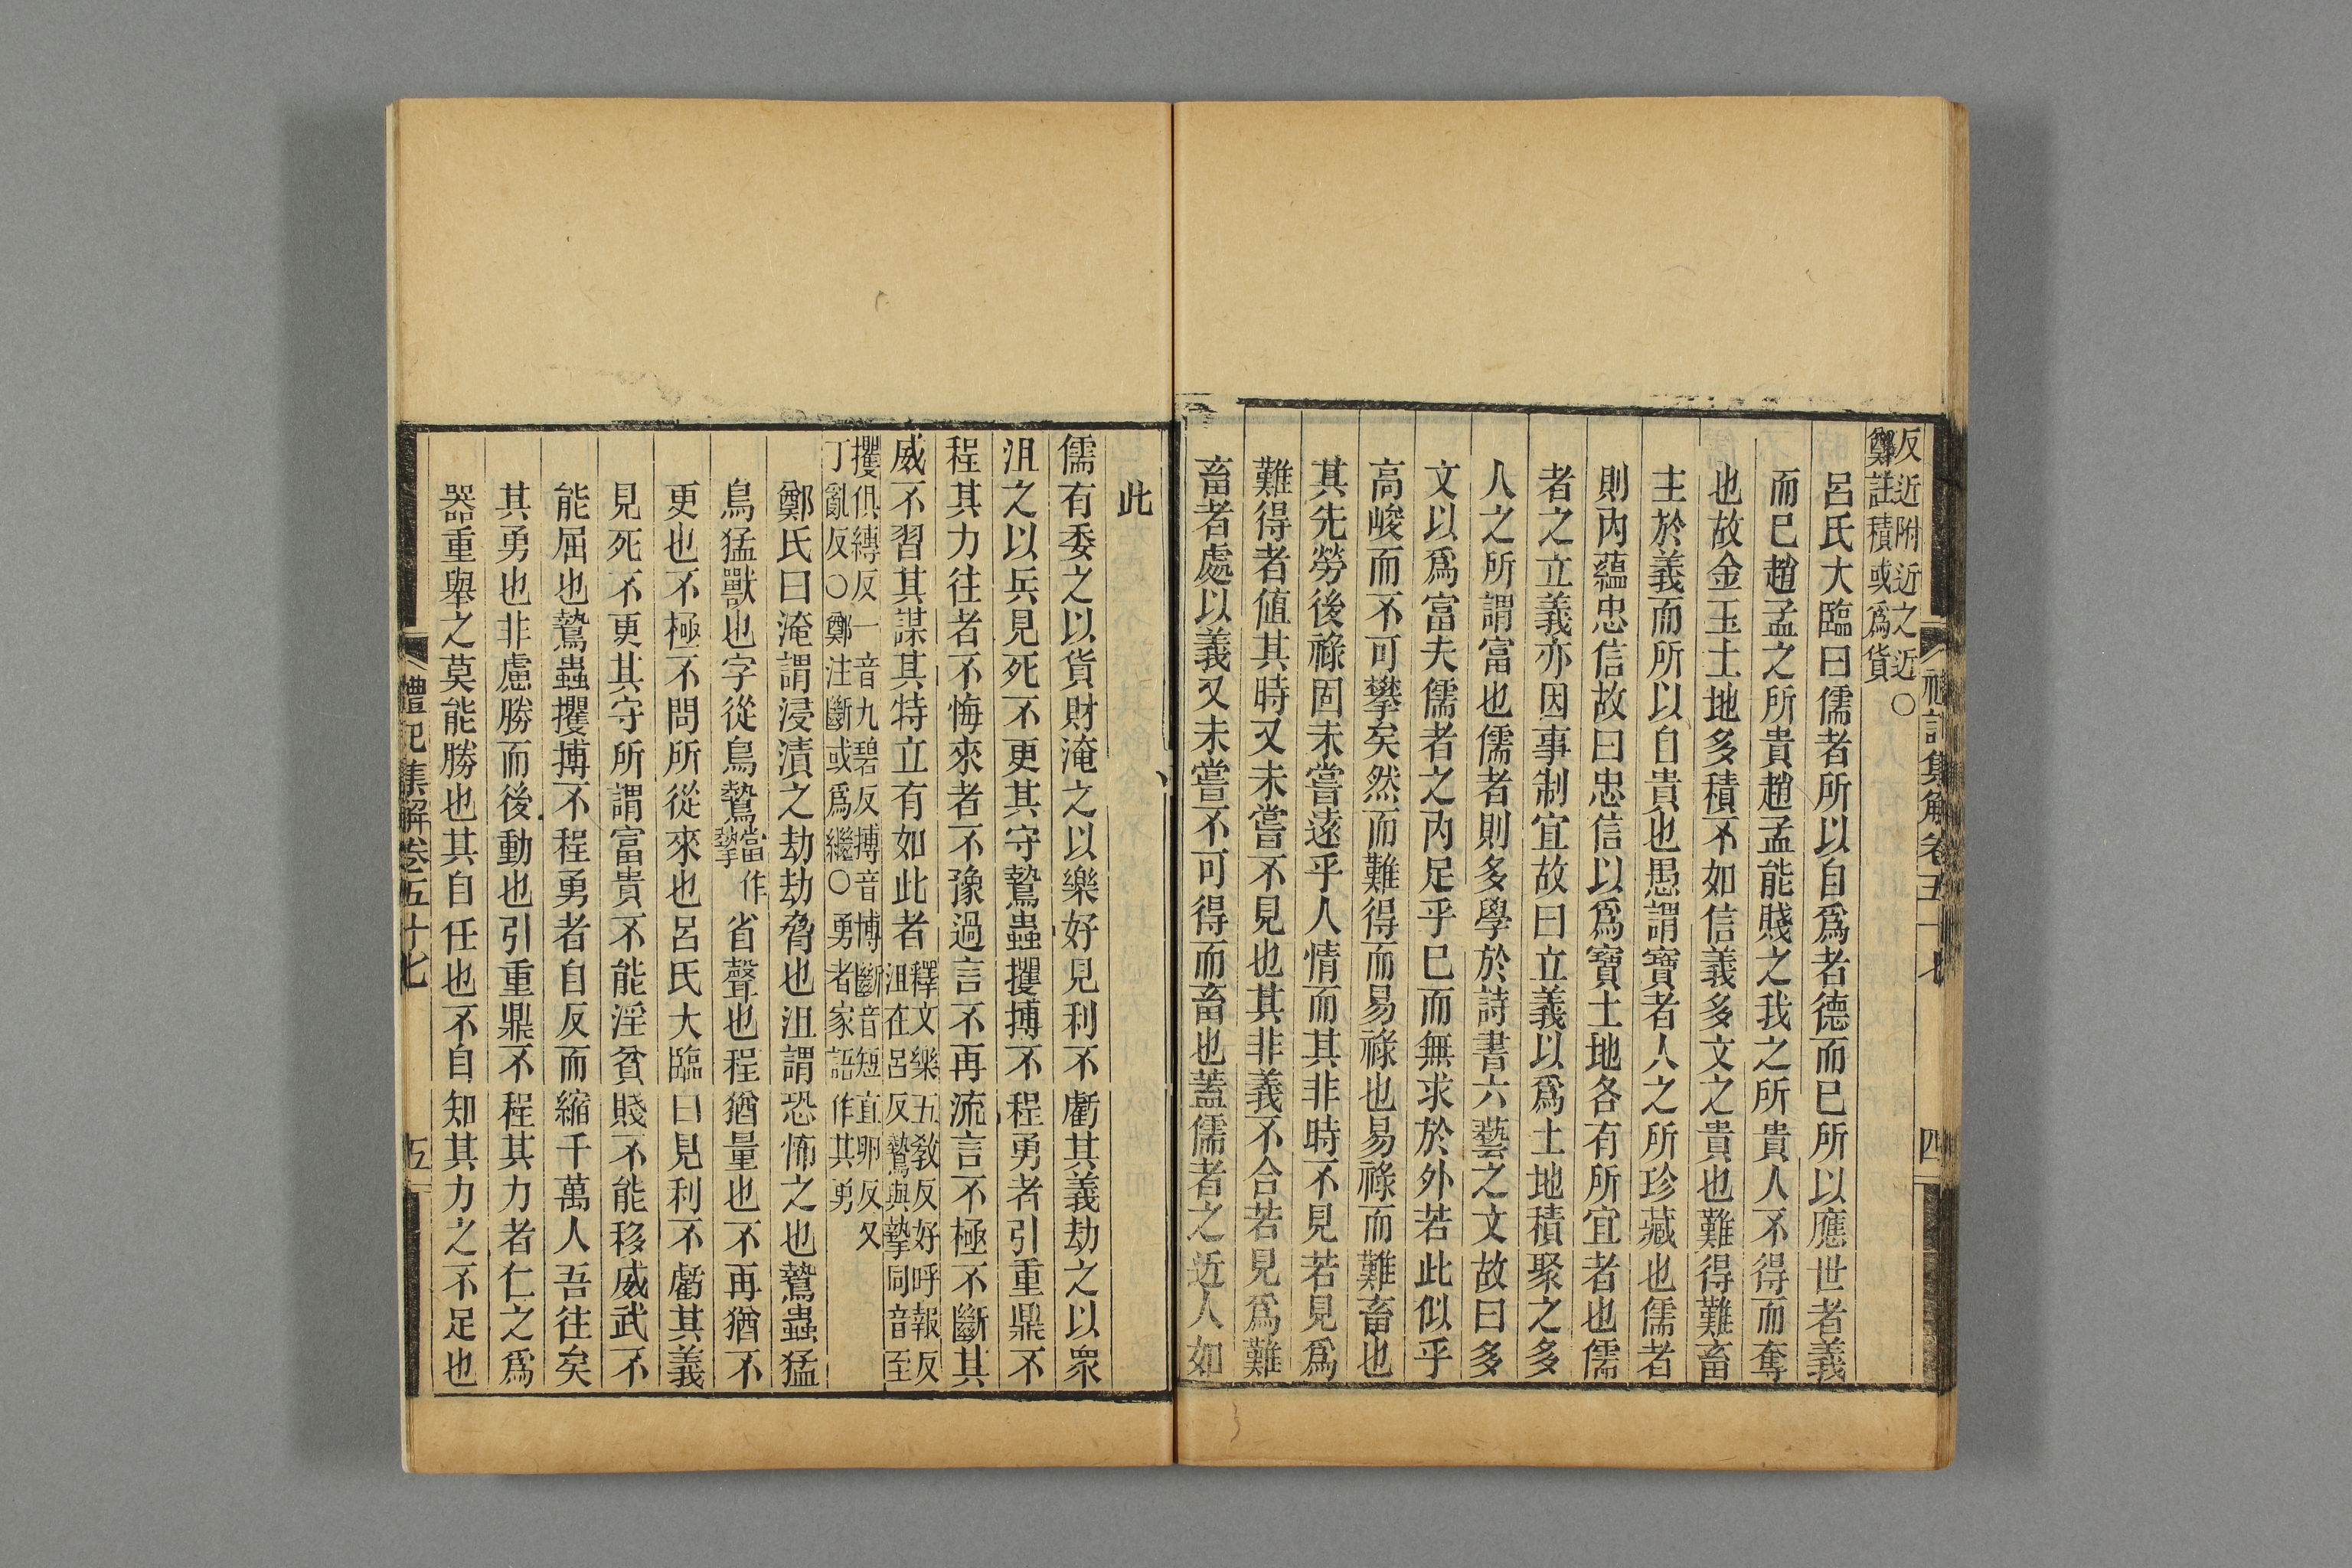 反近附近之近○
鄭註積或爲貨
呂氏大臨曰儒者所以自爲者德而已所以應世者義
而已趙孟之所貴趙孟能賤之我之所貴人不得而奪
也故金玉土地多積不如信義多文之貴也難得難畜
主於義而所以自貴也愚謂寶者人之所珍藏也儒者
則內蘊忠信故曰忠信以爲寶土地各有所宜者也儒
者之立義亦因事制宜故曰立義以爲土地積聚之多
人之所謂富也儒者則多學於詩書六藝之文故曰多
文以爲富夫儒者之內足乎已而無求於外若此似乎
高峻而不可攀矣然而難得而易祿也易祿而難畜也
其先勞後祿固未嘗遠乎人情而其非時不見若見爲
難得者値其時又未嘗不見也其非義不合若見爲難
畜者處以義又未嘗不可得而畜也蓋儒者之近人如
禮記集解卷五十七
四
此
儒有委之以貨財淹之以樂好見利不虧其義劫之以衆
沮之以兵見死不更其守鷙蟲攫搏不程勇者引重鼎不
程其力往者不悔來者不豫過言不再流言不極不斷其
威不習其謀其特立有如此者
釋文樂五敎反好呼報反
沮在呂反鷙與摯同音至
攫俱縛反一音九碧反搏音博斷音短直卵反又
丁亂反○鄭注斷或爲繼○勇者家語作其勇
鄭氏曰淹謂浸漬之劫劫脅也沮謂恐怖之也鷙蟲猛
鳥猛獸也字從鳥鷙
當作
摯
省聲也程猶量也不再猶不
更也不極不問所從來也呂氏大臨曰見利不虧其義
見死不更其守所謂富貴不能淫貧賤不能移威武不
能屈也鷙蟲攫搏不程勇者自反而縮千萬人吾往矣
其勇也非慮勝而後動也引重鼎不程其力者仁之爲
器重舉之莫能勝也其自任也不自知其力之不足也
禮記集解卷五十七
五